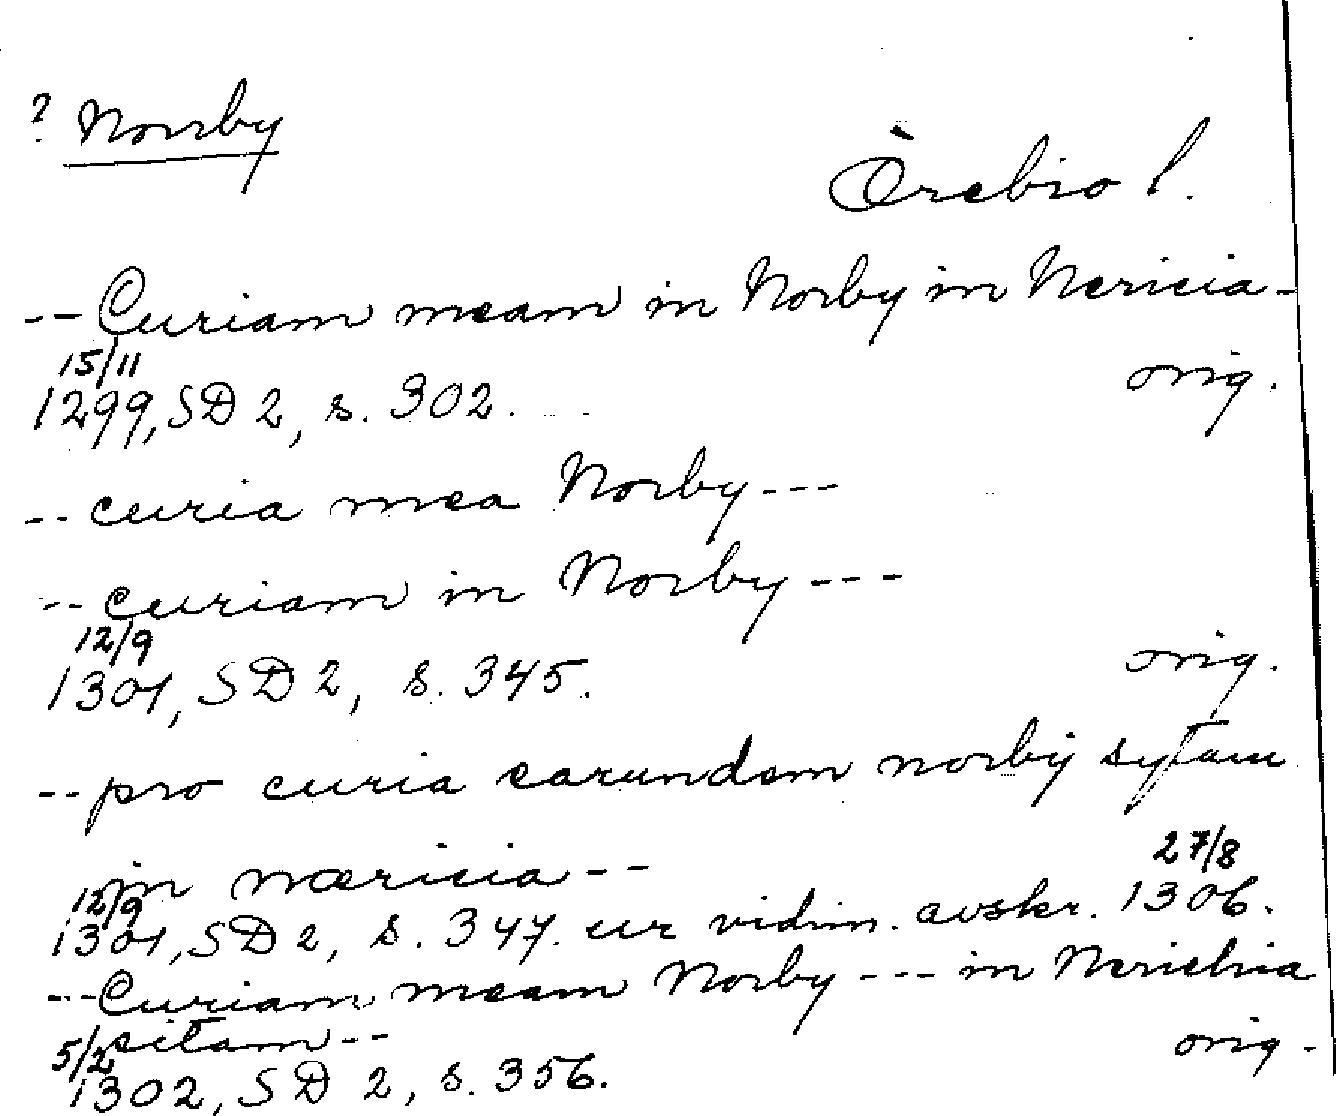 ? Norrby
Örebro l.
-- Curiam meam in Norby in Nericia -
15/11
1299, SD 2, s. 302. orig.
-- curia mea Norby ---
-- curiam in Norby ---
12/9
1301, SD 2, s. 345. orig.
-- pro curia earundem norby sytam
in næricia --
12/9 27/8
1301, SD 2, s. 347. ur vidim. avskr. 1306.
--- Curiam meam Norby --- in Nerichia
sitam --
5/2
1302, SD 2, s. 356. orig.